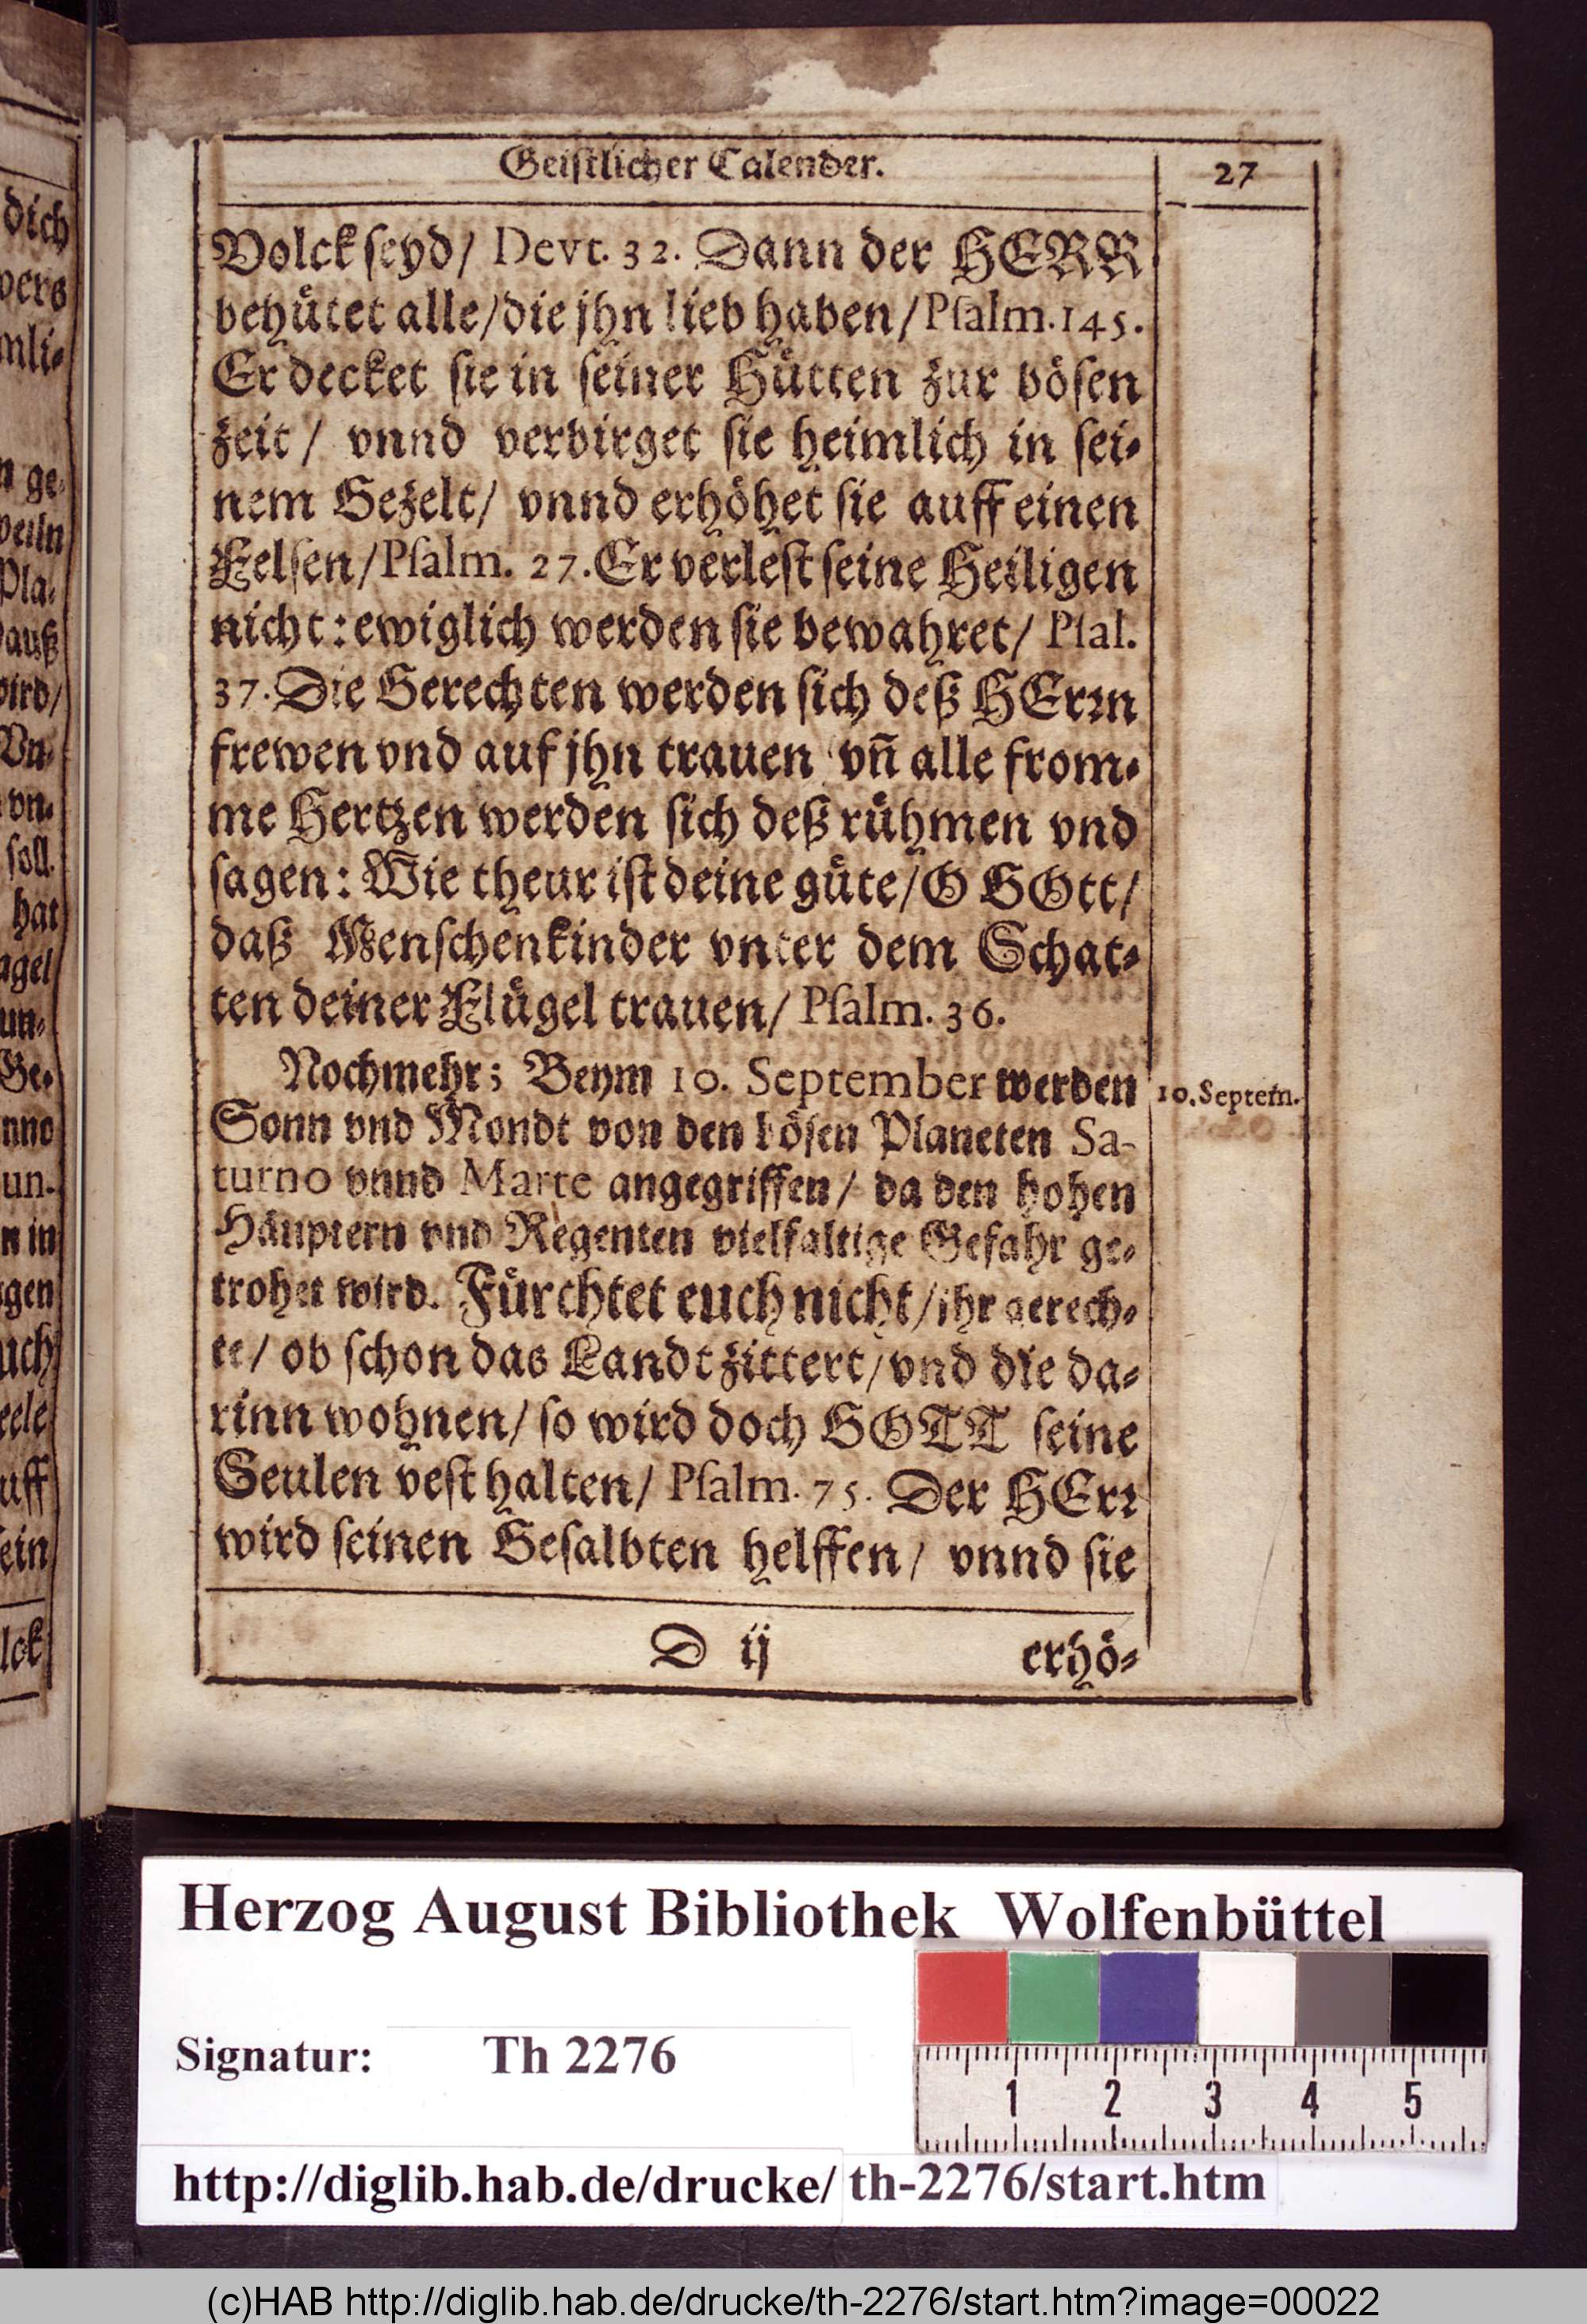 Geiſtlicher Calender.
27
Volck ſeyd/ Devt. 32. Dann der HERR
behuͤtet alle/die jhn lieb haben/Pſalm.145.
Er decket ſie in ſeiner Huͤtten zur boͤſen
zeit/ vnnd verbirget ſie heimlich in ſei-
nem Gezelt/ vnnd erhoͤhet ſie auff einen
Felſen/Pſalm. 27. Er verleſt ſeine Heiligen
nicht: ewiglich werden ſie bewahret/ Pſal.
37. Die Gerechten werden ſich deß HErꝛn
frewen vnd auf jhn trauen vñ alle from-
me Hertzen werden ſich deß ruͤhmen vnd
ſagen: Wie theur iſt deine guͤte/O GOtt/
daß Menſchenkinder vnter dem Schat-
ten deiner Fluͤgel trauen/ Pſalm. 36.
Nochmehr; Beym 10. September werden
10. Septem.
Sonn vnd Mondt von den boͤſen Planeten Sa-
turno vnnd Marte angegriffen/ da den hohen
Häuptern vnd Regenten vielfaltige Gefahr ge-
trohet wird. Fuͤrchtet euch nicht/ihr gerech-
te/ ob ſchon das Landt zittert/vnd die da-
rinn wohnen/ ſo wird doch GOTT ſeine
Seulen veſt halten/ Pſalm. 75. Der HErꝛ
wird ſeinen Geſalbten helffen/ vnnd ſie
D ij
erhoͤ-
dich
vers
mli-
n ge-
weiln
Pla-
auß
wird/
Vn-
vn-
ſoll.
hat
agel
un-
Ge-
nno
un-
n in
gen
uch
eele
uff
ſein
lck
Herzog August Bibliothek Wolfenbüttel
Signatur: Th 2276
1 2 3 4 5
http://diglib.hab.de/drucke/ th-2276/start.htm
(c)HAB http://diglib.hab.de/drucke/th-2276/start.htm?image=00022